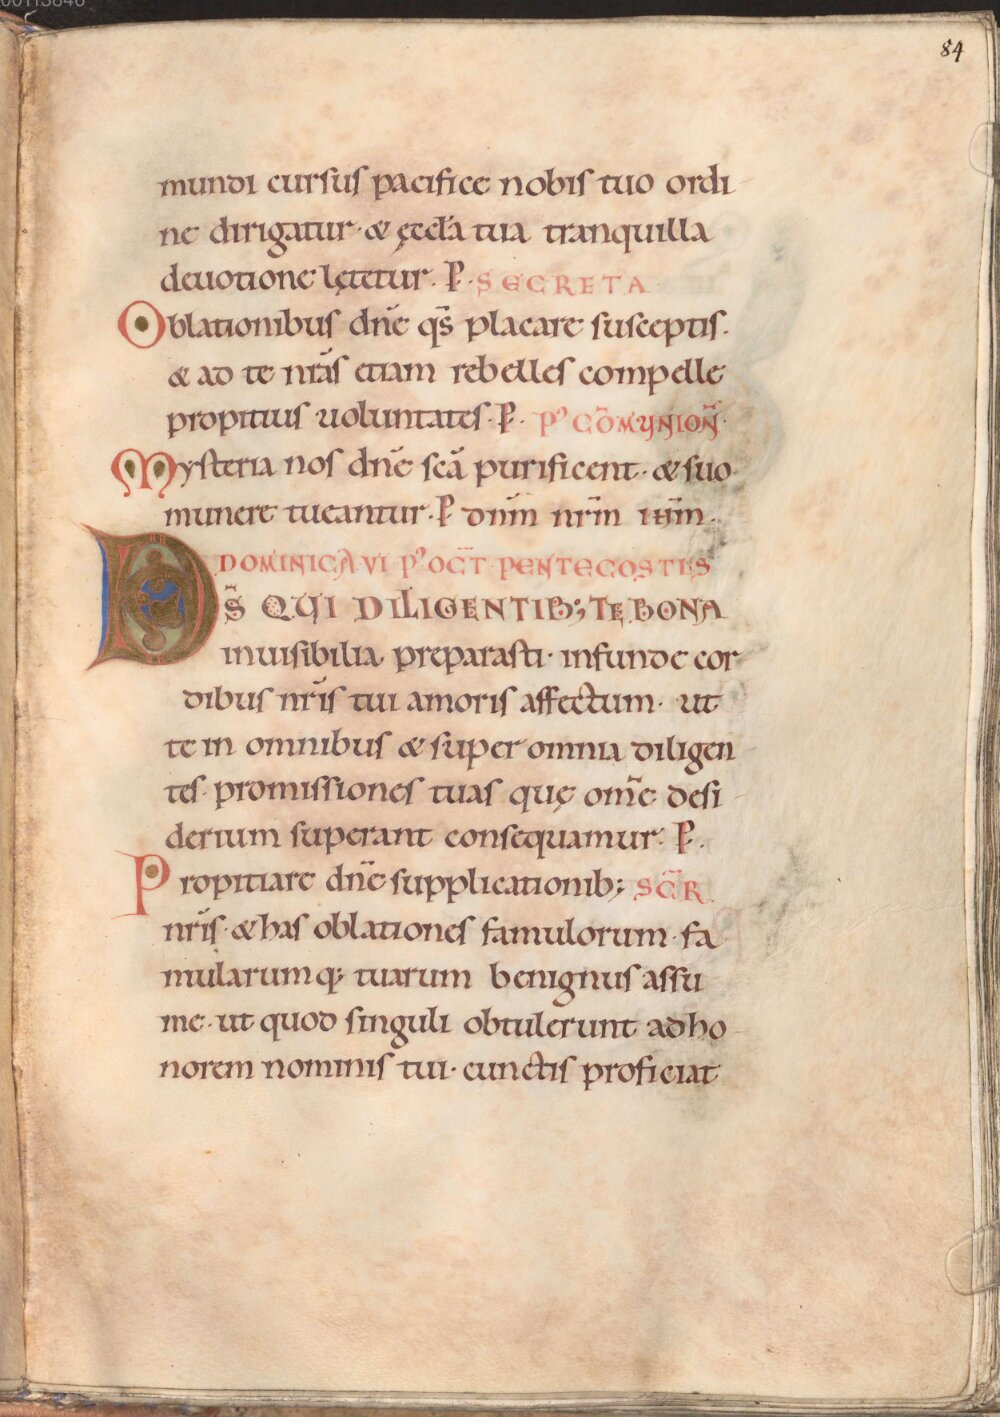 84
mundi cursus pacifice nobis tuo ordi
ne dirigatur · & ęccl̄a tua tranquilla
deuotione lętetur · P̲ · SECRETA
Oblationibus dn̄e qs̄ placare susceptis ·
& ad te nr̄as etiam rebelles compelle
propitius uoluntates · P̲ · Pꝰ CŌMVNION̄
Mysteria nos dn̄e sc̄a purificent · & suo
munere tueantur · P̲ dn̄m nr̄m ihm̄ ·
DOMINICA VI Pꝰ OCT̄ PENTECOSTES
DS̄ QUI DILIGENTIB; TE BONA
inuisibilia preparasti · infunde cor
dibus nr̄is tui amoris affectum · ut
te in omnibus & super omnia diligen
tes · promissiones tuas quę om̄e desi
derium superant consequamur · P̲ ·
Propitiare dn̄e supplicationib; SECR̄
nr̄is · & has oblationes famulorum · fa
mularumq; tuarum benignus assu
me · ut quod singuli obtulerunt ad ho
norem nominis tui · cunctis proficiat